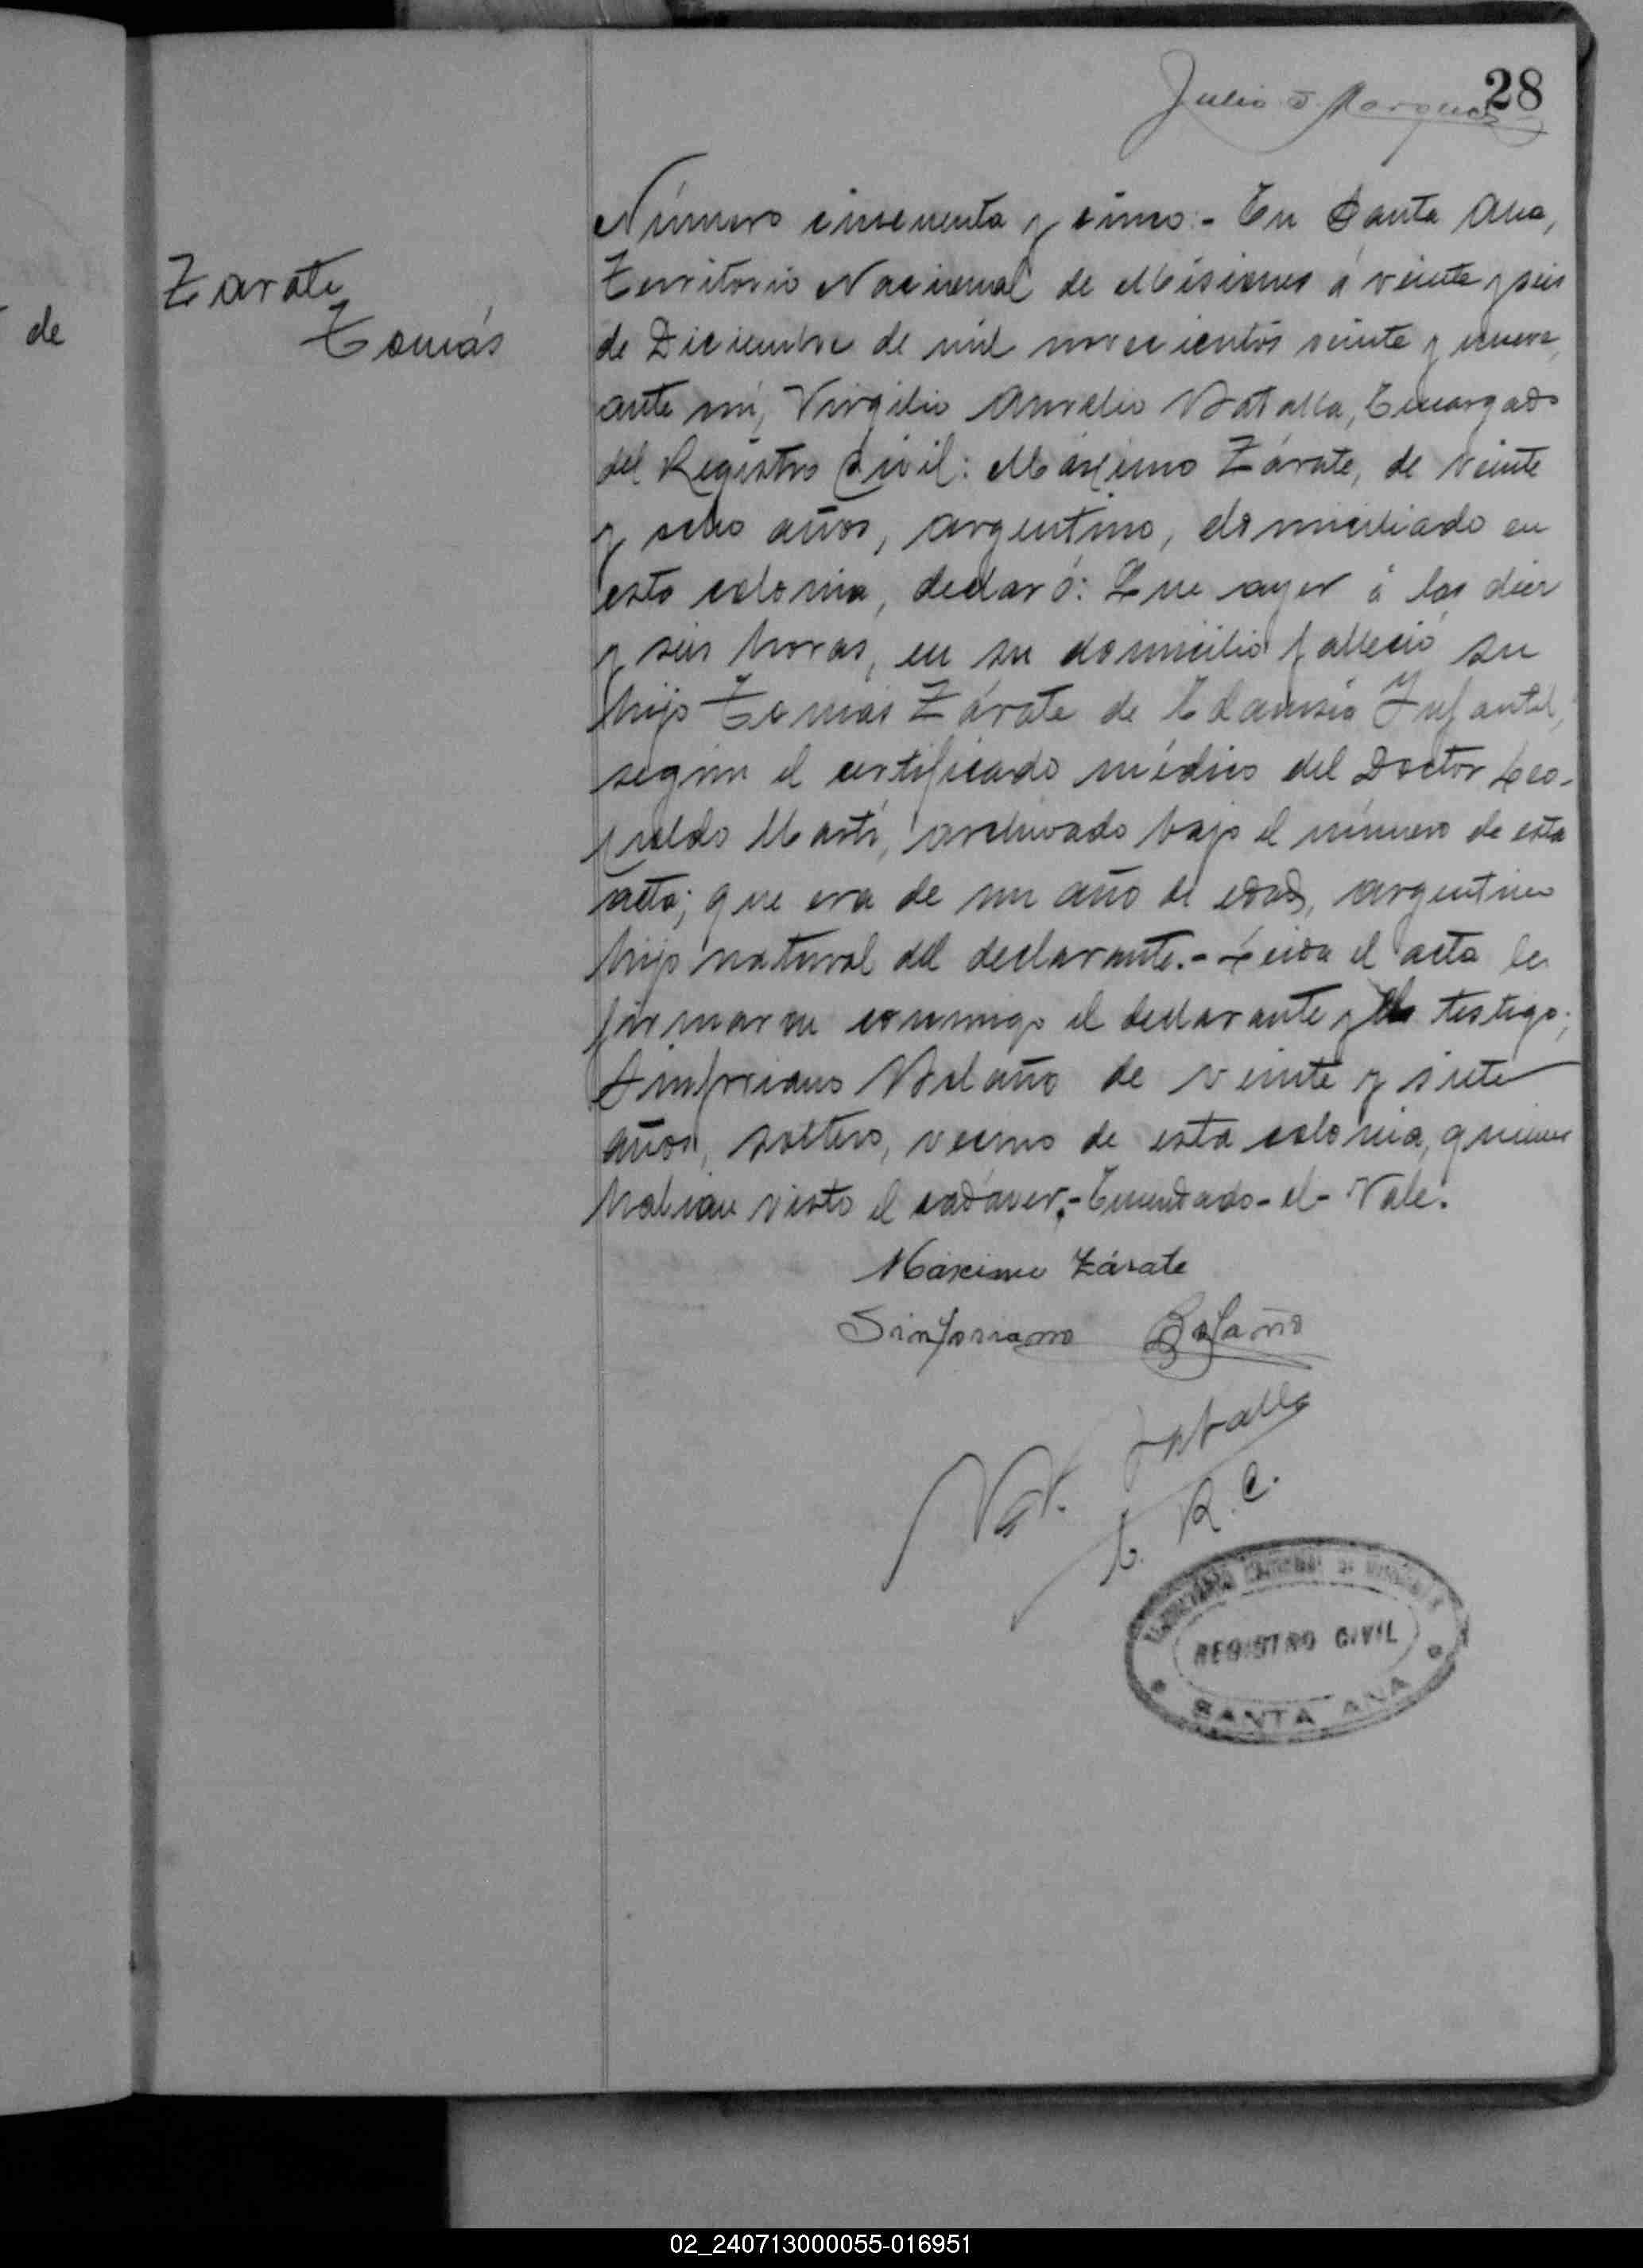 28
Julio J. Marquez
de
Zarate
Tomás
Número cincuenta y cinco:- En Santa Ana,
Territorio Nacional de Misiones á veinte y seis
de Diciembre de mil novecientos veinte y nueve,
ante mí, Virgilio Aurelio Batalla, Encargado
del Registro Civil: Máximo Zárate, de veinte
y ocho años, argentino, domiciliado en
esta colonia, declaró: Que ayer á las diez
y seis horas, en su domicilio falleció su
hijo Tomás Zárate de Eclamsia Infantil,
según el certificado médico del Doctor Leo-
poldo Martí, archivado bajo el número de esta
acta; que era de un año de edad, argentino
hijo natural del declarante.- Leida el acta la
firmaron conmigo el declarante y el testigo;
Sinforiano Bolaño de veinte y siete
años, soltero, vecino de esta colonia, quienes
habían visto el cadáver.- Enmendado- el- Vale.
Máximo Zárate
Sinforiano Bolaño
V. A. Batalla
E. R. C.
TERRITORIO NACIONAL DE MISIONES
REGISTRO CIVIL
SANTA ANA
02_240713000055-016951